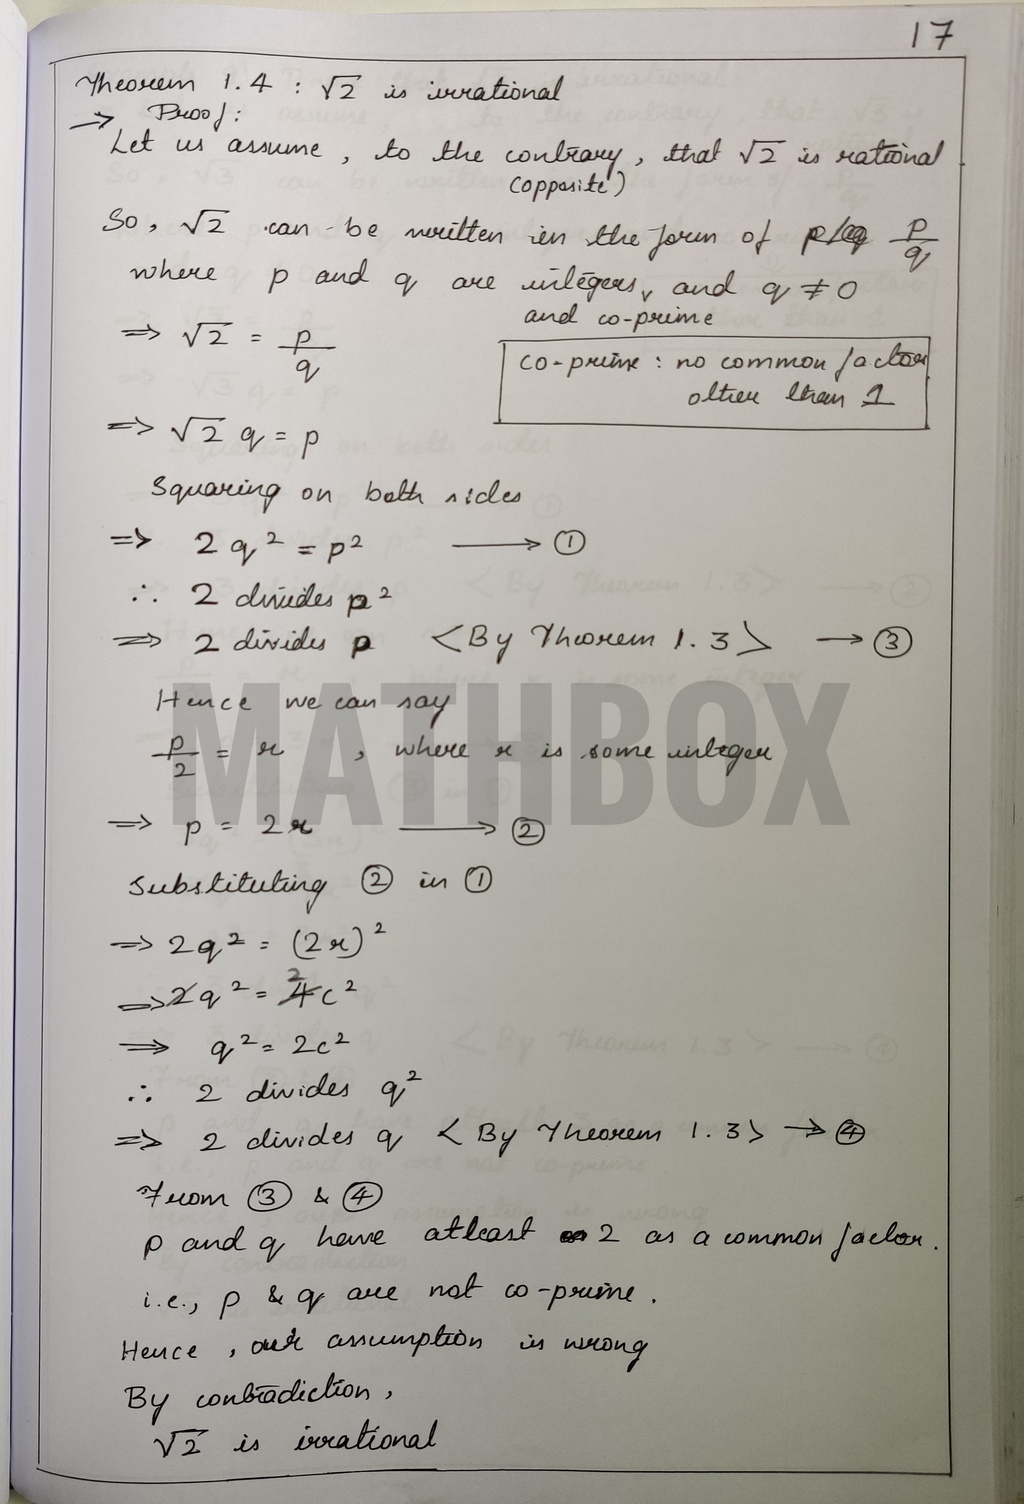 17
Theorem 1.4 : √2 is irrational
⇒ Proof:
Let us assume, to the contrary, that √2 is rational
(opposite)
So, √2 can be written in the form of p/q
where p and q are integers, and q ≠ 0
and co-prime
⇒ √2 = p/q
co-prime : no common factor
other than 1
⇒ √2 q = p
Squaring on both sides
⇒ 2q² = p² ⟶ ①
∴ 2 divides p²
⇒ 2 divides p <By Theorem 1.3> → ③
Hence we can say
p/2 = r , where r is some integer
⇒ p = 2r ⟶ ②
Substituting ② in ①
⇒ 2q² = (2r)²
⇒ 2q² = 4c² 2
⇒ q² = 2c²
∴ 2 divides q²
⇒ 2 divides q <By Theorem 1.3> → ④
From ③ & ④
p and q have atleast 2 as a common factor.
i.e., p & q are not co-prime.
Hence, our assumption is wrong
By contradiction,
√2 is irrational
MATHBOX